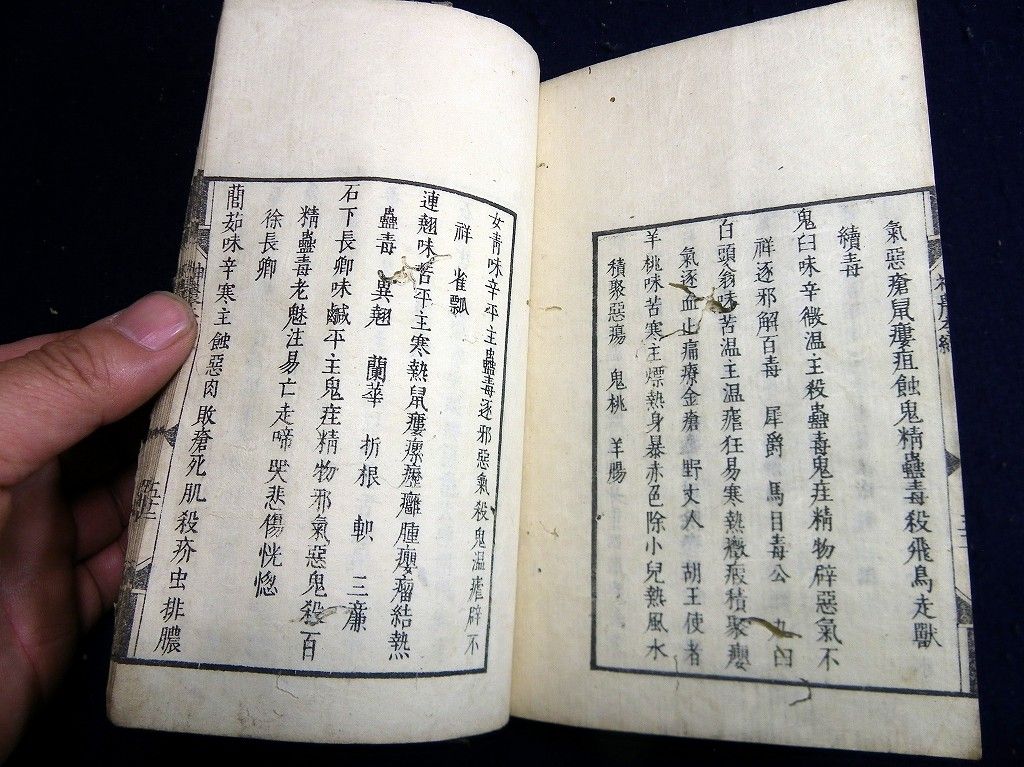 氣惡瘡鼠瘻疽蝕鬼精蠱毒殺飛鳥走獸
續毒
鬼臼味辛微温主殺蠱毒鬼疰精物辟惡氣不
祥逐邪解百毒 犀爵 馬目毒公 九臼
白頭翁味苦温主温瘧狂易寒熱癥瘕積聚癭
氣逐血止痛療金瘡 野丈人 胡王使者
羊桃味苦寒主熛熱身暴赤色除小兒熱風水
積聚惡瘍 鬼桃 羊腸
女青味辛平主蠱毒逐邪惡氣殺鬼温瘧辟不
祥 雀瓢
連翹味苦平主寒熱鼠瘻瘰癧癰腫癭瘤結熱
蠱毒 異翹 蘭華 折根 軹 三廉
石下長卿味鹹平主鬼疰精物邪氣惡鬼殺百
精蠱毒老魅注易亡走啼哭悲傷恍惚
徐長卿
䕡茹味辛寒主蝕惡肉敗瘡死肌殺疥虫排膿